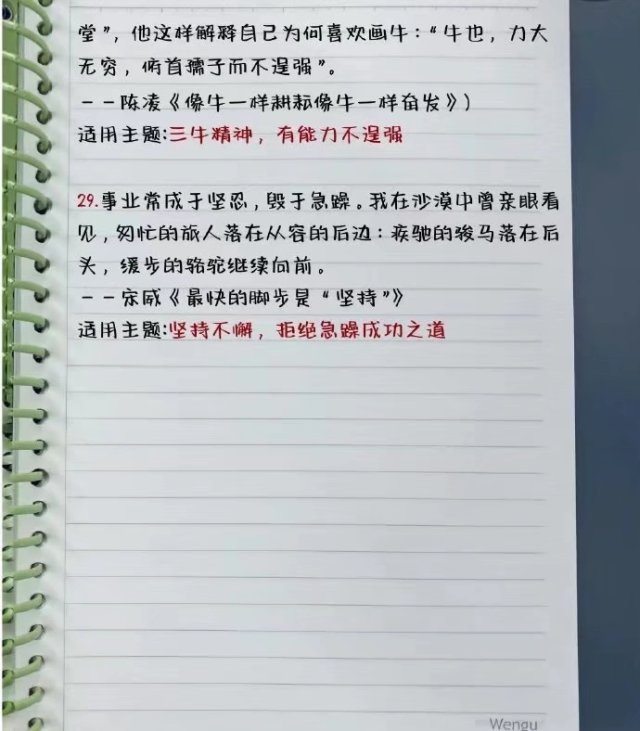 堂”，他这样解释自己为何喜欢画牛：“牛也，力大
无穷，俯首孺子而不逞强”。
——陈凌《像牛一样耕耘像牛一样奋发》）
适用主题:三牛精神，有能力不逞强
29.事业常成于坚忍，毁于急躁。我在沙漠中曾亲眼看
见，匆忙的旅人落在从容的后边：疾驰的骏马落在后
头，缓步的骆驼继续向前。
——宋威《最快的脚步是“坚持”》
适用主题:坚持不懈，拒绝急躁成功之道
Wengu